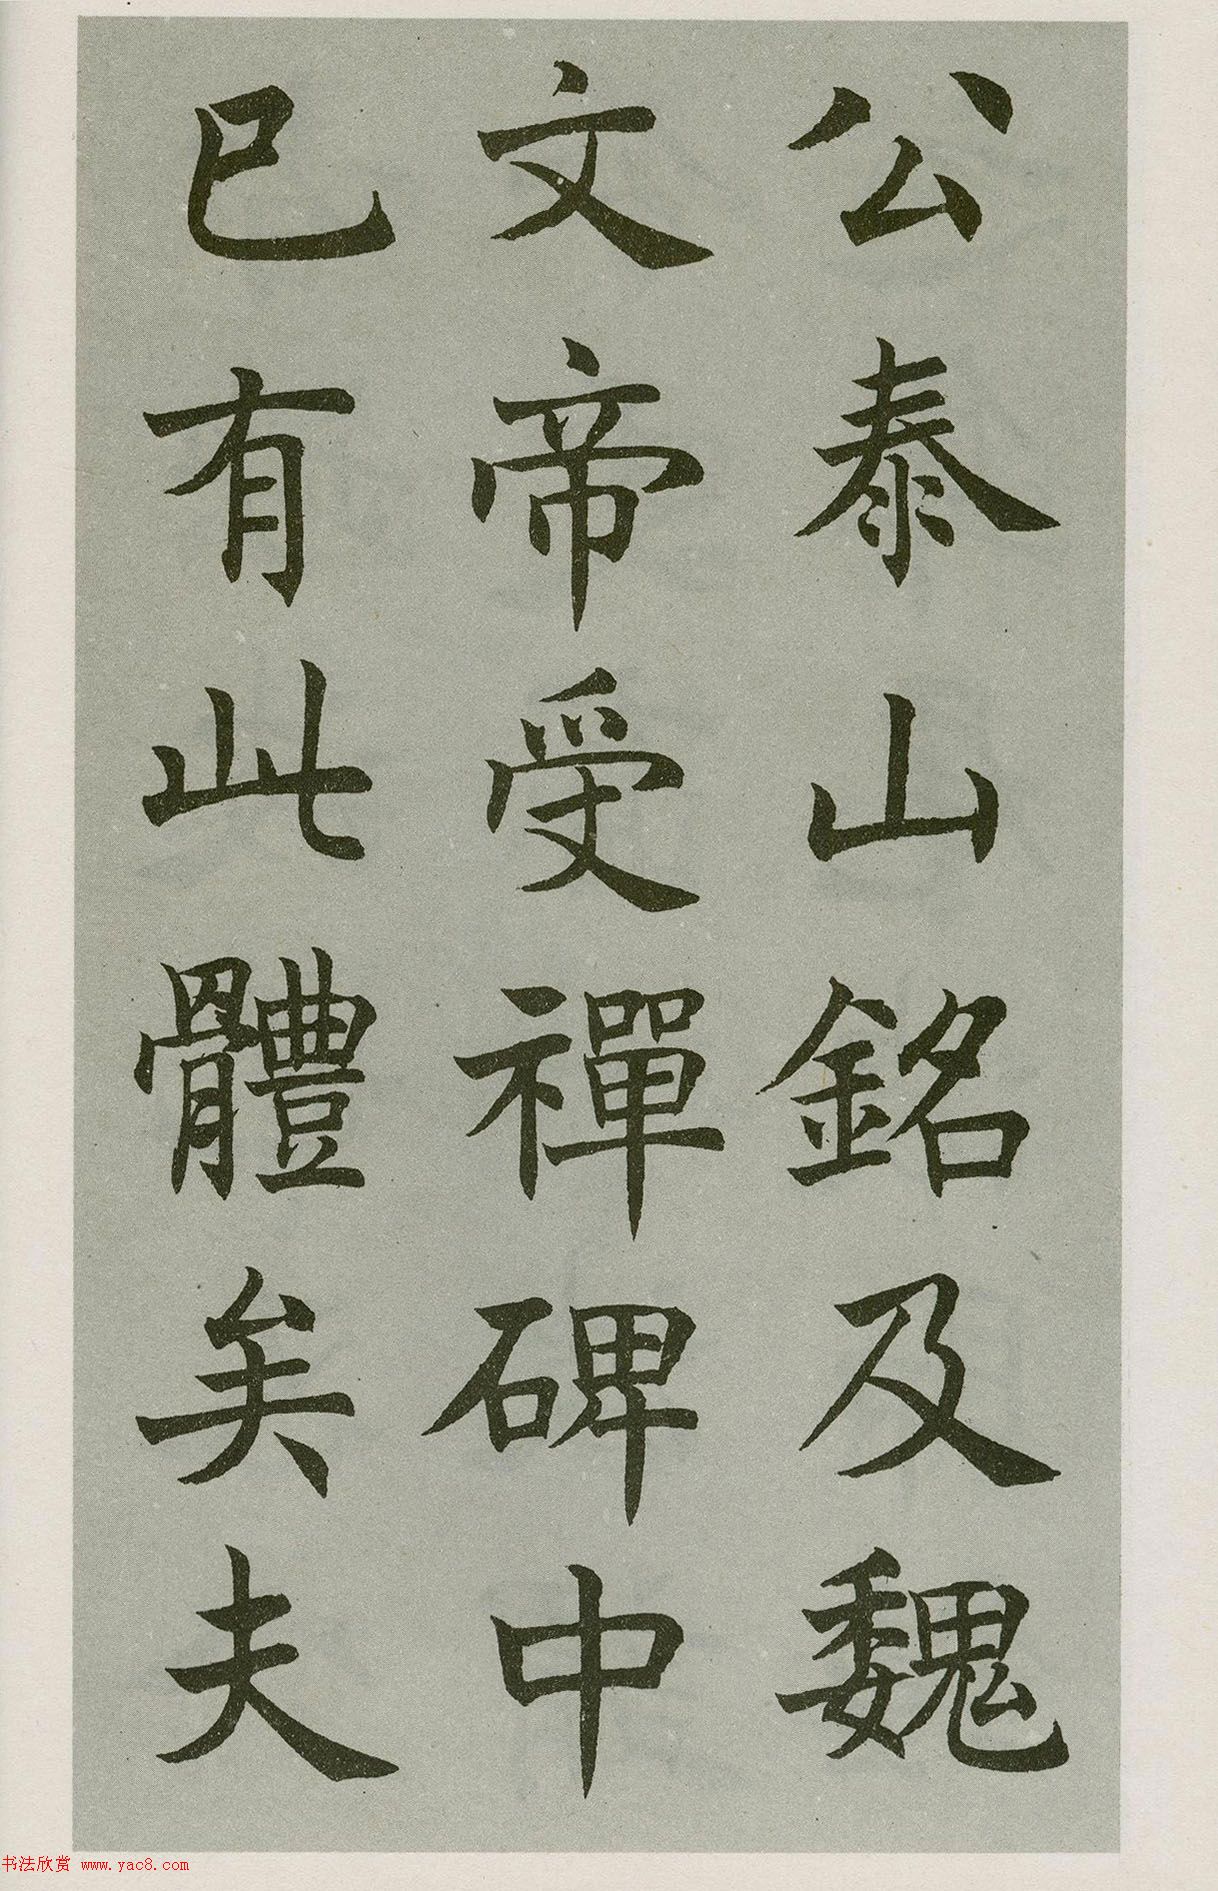 公泰山銘及魏
文帝受禪碑中
已有此體矣夫
书法欣赏 www.yac8.com